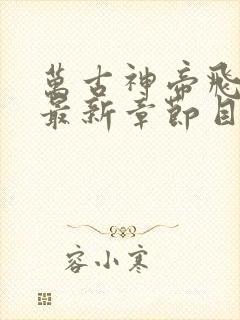 萬古神帝飛
最新章節目
容小寒